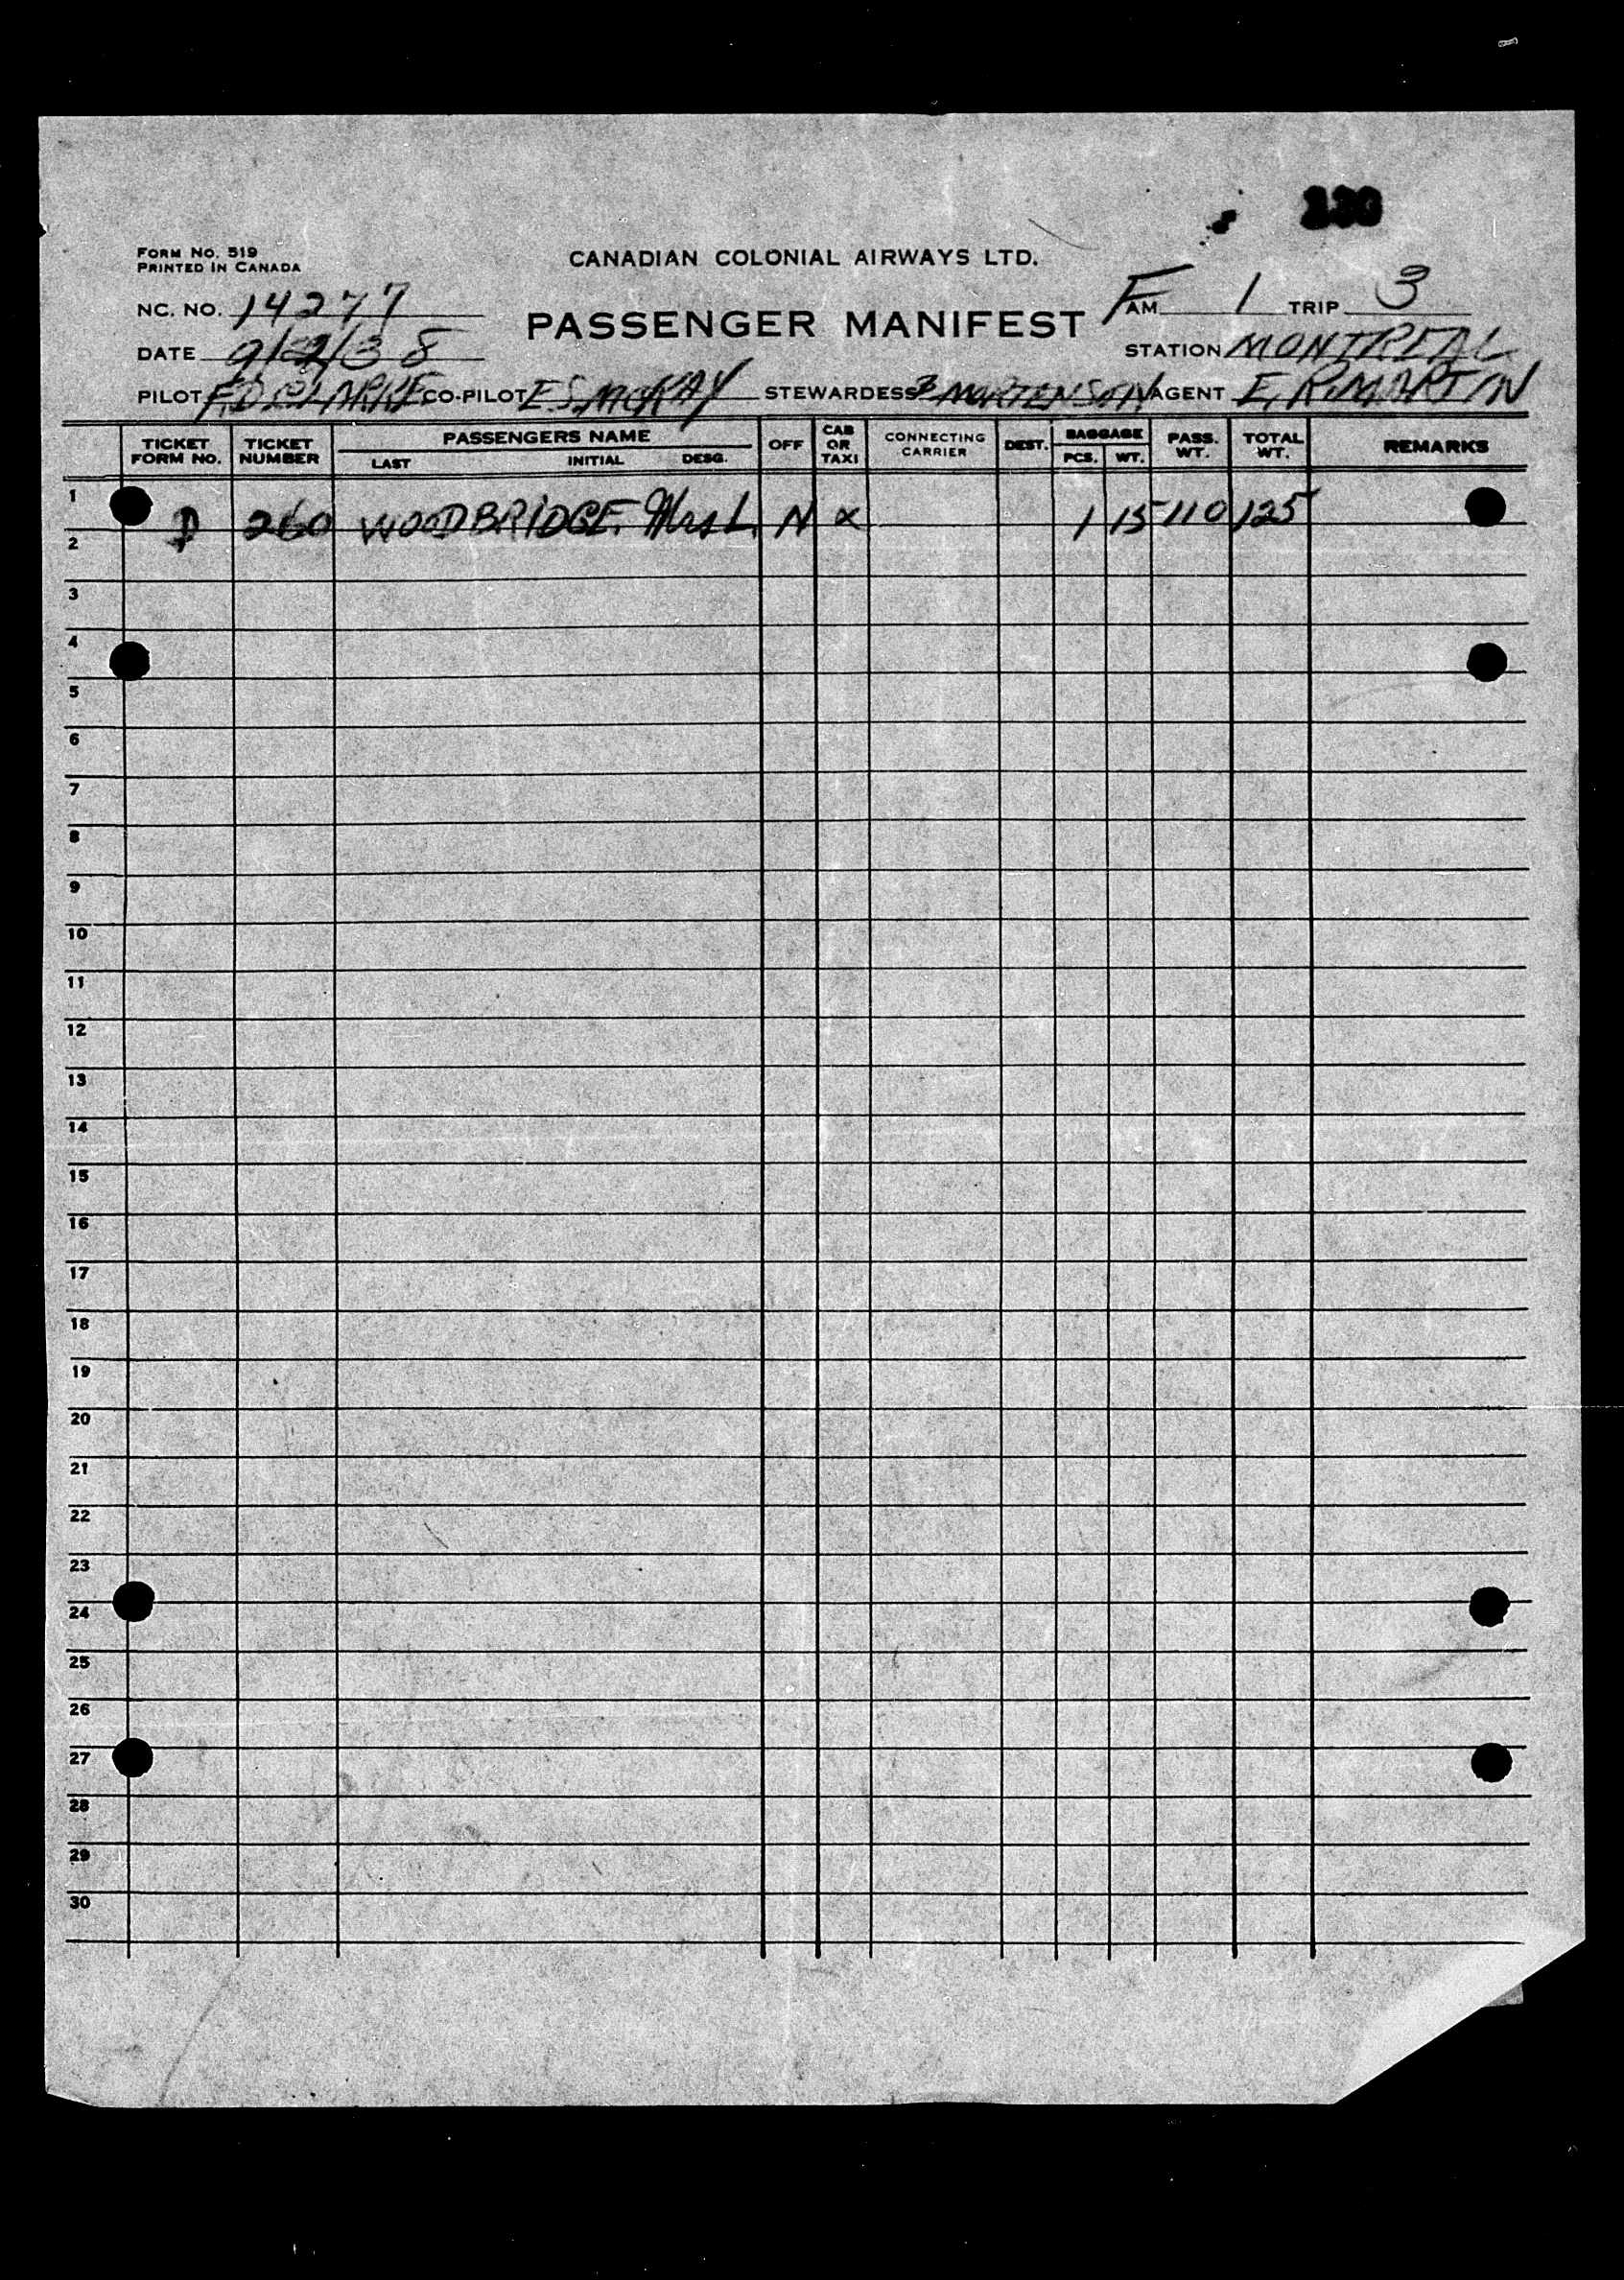 130
FORM NO. 519
PRINTED IN CANADA
CANADIAN COLONIAL AIRWAYS LTD.
NC. NO. 14277
PASSENGER MANIFEST
FAM 1 TRIP 3
DATE 9/2/38
STATION MONTREAL
PILOT F.D. CLARKE CO-PILOT E.S. McKAY STEWARDESS B MORTENSON AGENT E. R. MARTIN
TICKET FORM NO. TICKET NUMBER PASSENGERS NAME LAST INITIAL DESG. OFF CAB OR TAXI CONNECTING CARRIER DEST. BAGGAGE PCS. WT. PASS. WT. TOTAL WT. REMARKS
1 D 260 WOODBRIDGE. Mrs L. N x 1 15 110 125
2
3
4
5
6
7
8
9
10
11
12
13
14
15
16
17
18
19
20
21
22
23
24
25
26
27
28
29
30